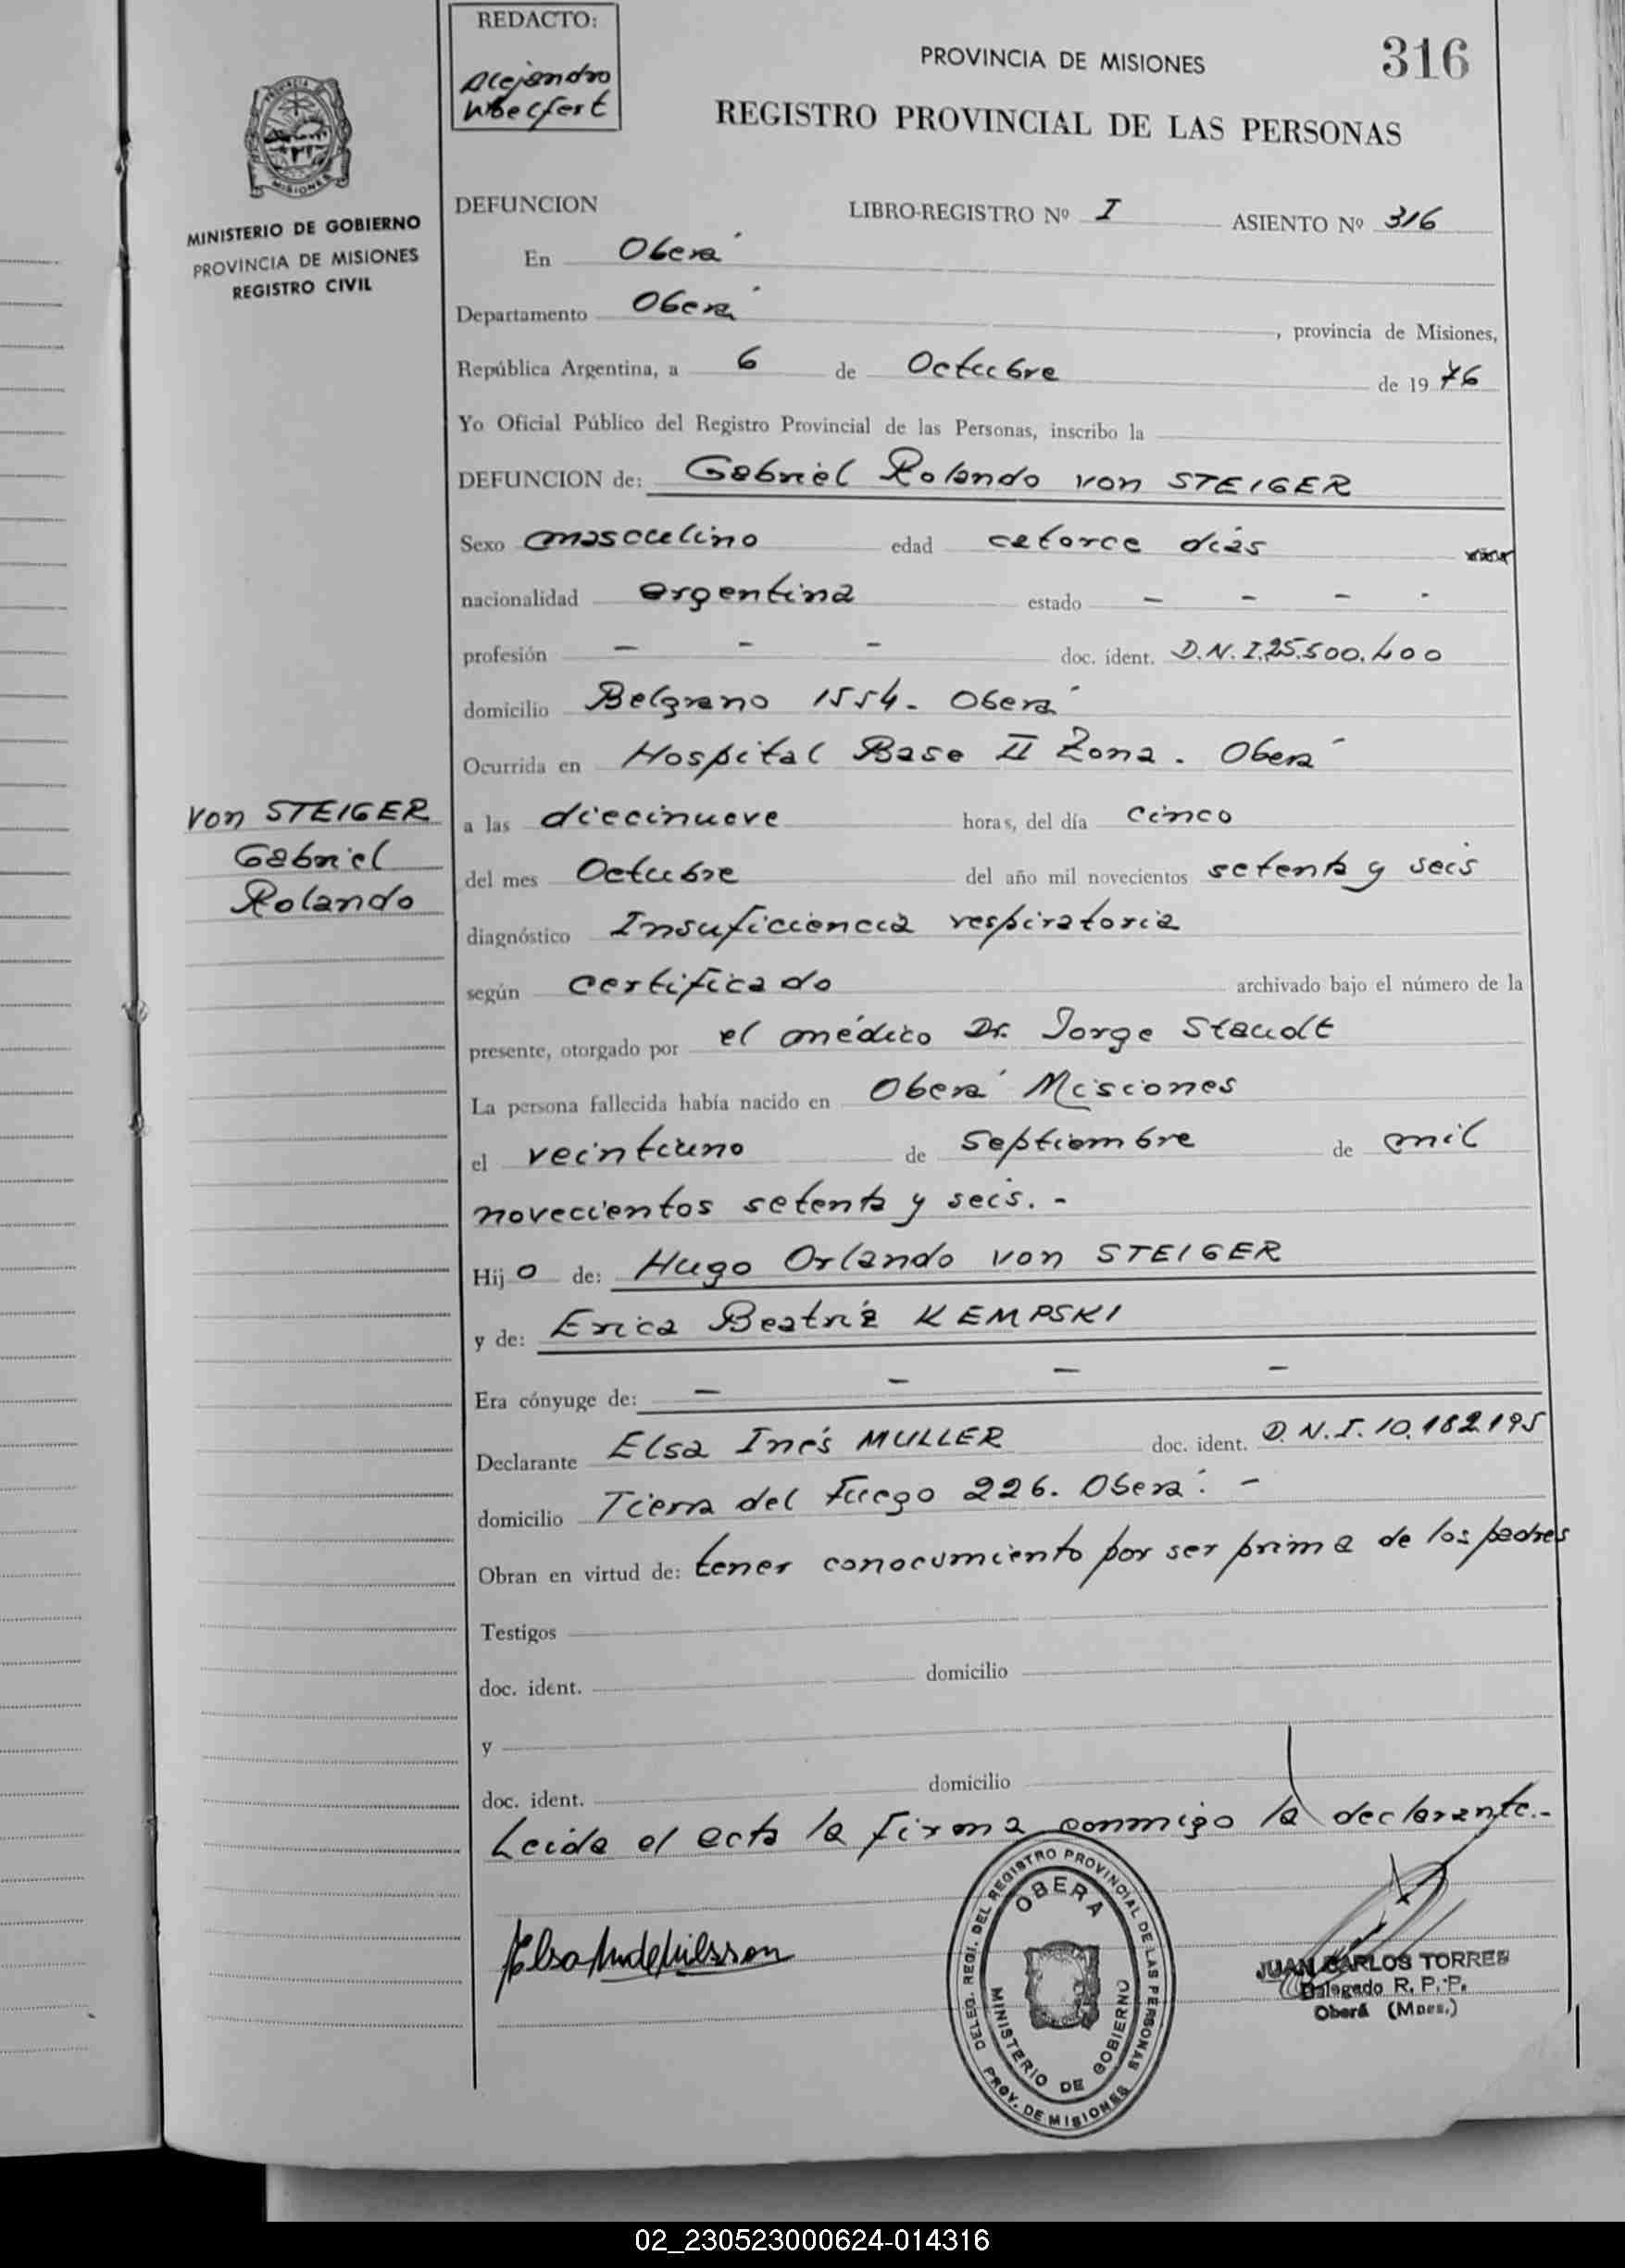 REDACTO:
Alejandro
316
PROVINCIA DE MISIONES
REGISTRO PROVINCIAL DE LAS PERSONAS
PROVINCIA DE
MISIONES
MINISTERIO DE GOBIERNO
PROVINCIA DE MISIONES
REGISTRO CIVIL
DEFUNCION LIBRO-REGISTRO Nº I ASIENTO Nº 316
En Oberá
Departamento Oberá, provincia de Misiones,
República Argentina, a 6 de Octubre de 1976
Yo Oficial Público del Registro Provincial de las Personas, inscribo la
DEFUNCION de: Gabriel Rolando von STEIGER
Sexo masculino edad catorce días
nacionalidad argentina estado - - - -
profesión - - - doc. ident. D.N.I.25.500.400
domicilio Belgrano 1554. Oberá
Ocurrida en Hospital Base II Zona. Oberá
von STEIGER
Gabriel
Rolando
a las diecinueve horas, del día cinco
del mes Octubre del año mil novecientos setenta y seis
diagnóstico Insuficiencia respiratoria
según certificado archivado bajo el número de la
presente, otorgado por el médico Dr. Jorge Staudt
La persona fallecida había nacido en Oberá Misiones
el veintiuno de septiembre de mil
novecientos setenta y seis. -
Hijo de: Hugo Orlando von STEIGER
y de: Erica Beatriz KEMPSKI
Era cónyuge de: - - - -
Declarante Elsa Inés MULLER doc. ident. D.N.I. 10.182.195
domicilio Tierra del Fuego 226. Oberá. -
Obran en virtud de: tener conocimiento por ser prima de los padres
Testigos
doc. ident. domicilio
y
doc. ident. domicilio
Leida el acta la firma conmigo la declarante.-
DELEG. REGI. DEL REGISTRO PROVINCIAL DE LAS PERSONAS
OBERA
MINISTERIO DE GOBIERNO
PROV. DE MISIONES
JUAN CARLOS TORRES
Delegado R. P. P.
Oberá (Mnes.)
02_230523000624-014316